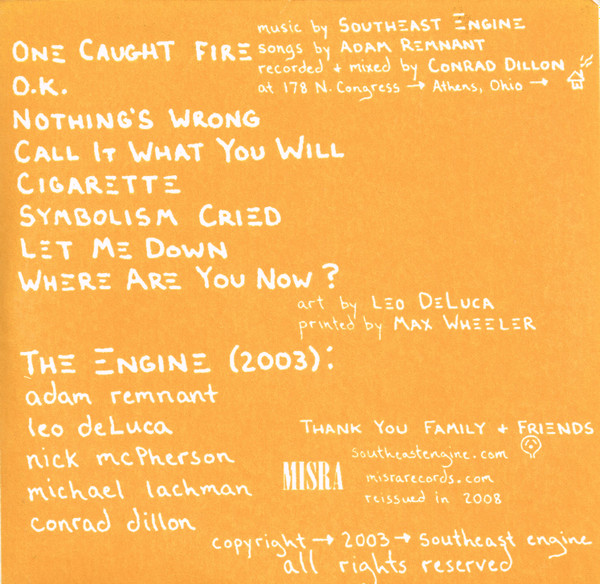 music by Southeast Engine
songs by Adam Remnant
recorded + mixed by Conrad Dillon
at 178 N. Congress → Athens, Ohio →
One Caught Fire
O.K.
Nothing's Wrong
Call It What You Will
Cigarette
Symbolism Cried
Let Me Down
Where Are You Now?
art by Leo DeLuca
printed by Max Wheeler
The Engine (2003):
adam remnant
leo deLuca
nick mcPherson
michael lachman
conrad dillon
Thank You Family + Friends
southeastengine.com
MISRA
misrarecords.com
reissued in 2008
copyright → 2003 → southeast engine
all rights reserved